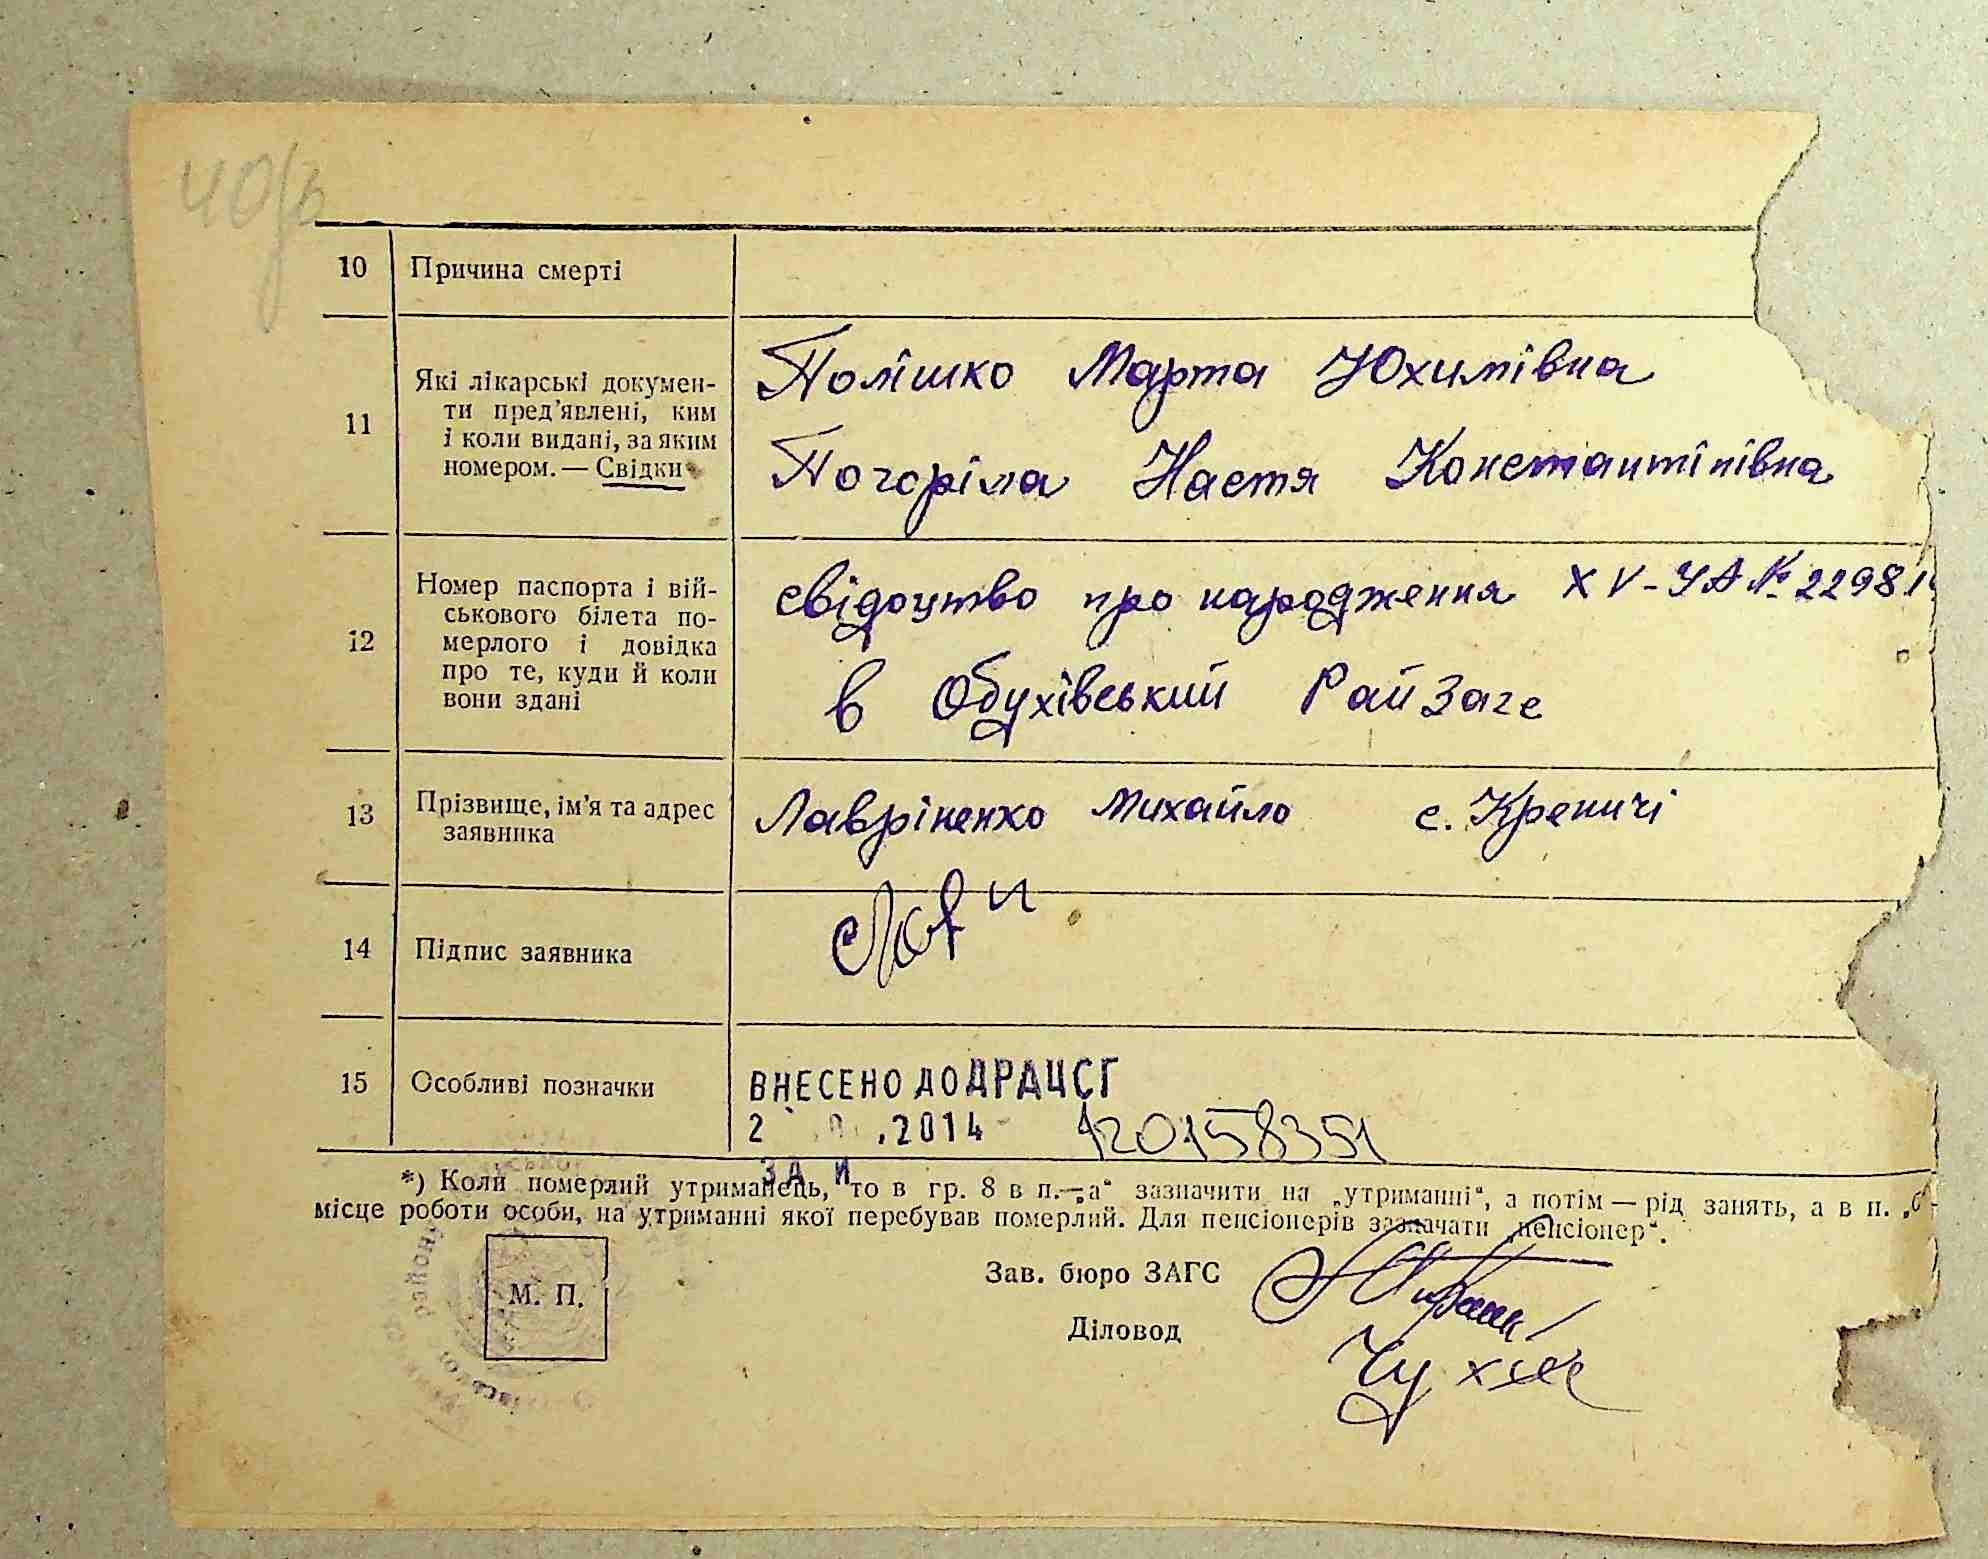 10 Причина смерті
11 Які лікарські докумен-
ти пред'явлені, ким
і коли видані, за яким
номером. — Свідки
Полїшко Марта Юхимівна
Погоріла Настя Константінівна
12 Номер паспорта і вій-
ськового білета по-
мерлого і довідка
про те, куди й коли
вони здані
свідоцтво про народження XV-УА № 22981
в Обухівський РайЗагс
13 Прізвище, ім'я та адрес
заявника
Лавріненко Михайло с. Креничі
14 Підпис заявника
15 Особливі позначки
ВНЕСЕНО ДО ДРАЦСГ
2 .2014 120158351
ЗА И
*) Коли померлий утриманець, то в гр. 8 в п.—„а“ зазначити на „утриманні“, а потім — рід занять, а в п. „б“-
місце роботи особи, на утриманні якої перебував померлий. Для пенсіонерів зазначати „пенсіонер“.
М. П.
Зав. бюро ЗАГС
Діловод